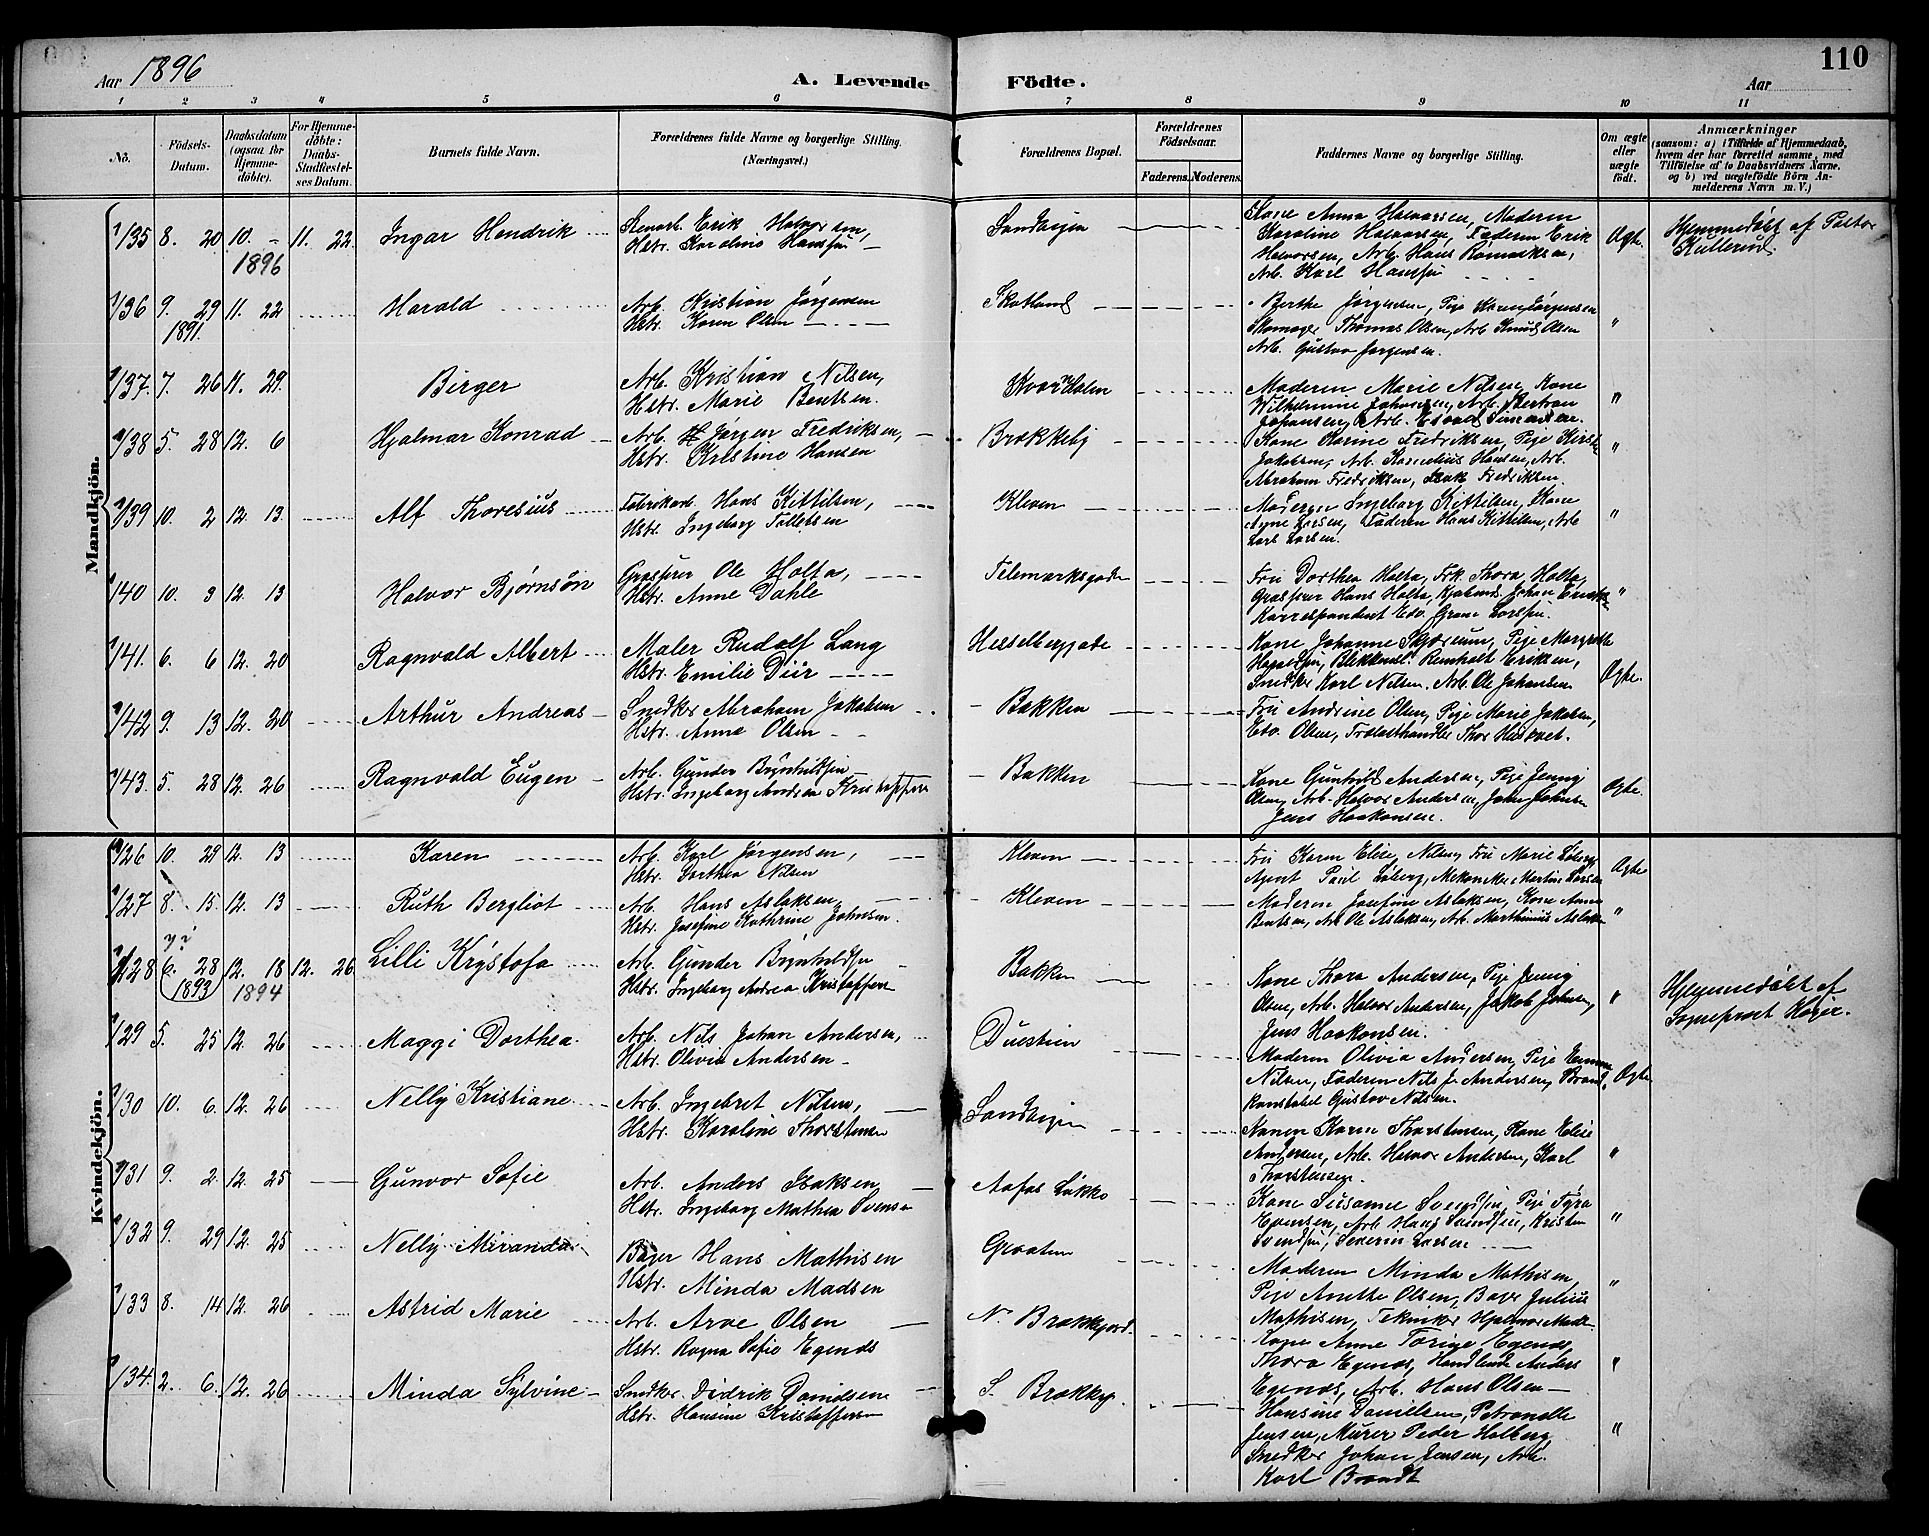 Aar 1896
A. Levende Födte.
Aar
110
1 2 3 4 5 6 7 8 9 10 11
No.
Födsels-Datum.
Daabsdatum (ogsaa for Hjemme-döbte).
For Hjemme-döbte: Daabs-Stadfæstel-ses Datum.
Barnets fulde Navn.
Forældrenes fulde Navne og borgerlige Stilling. (Næringsvei.)
Forældrenes Bopæl.
Forældrenes Födselsaar.
Faderens. Moderens.
Faddernes Navne og borgerlige Stilling.
Om ægte eller uægte födt.
Anmærkninger
(saasom: a) i Tilfælde af Hjemmedaab, hvem der har forrettet samme, med Tilföielse af to Daabsvidners Navne, og b) ved uægtefödte Börn An-melderens Navn m. V.)
Mandkjön.
135 8. 20 10. - 1896 11. 22 Ingar Hendrik
Hstr. Karoline Hansen
Kone Anna Halvorsen, Moderen
Karoline Halvorsen, Faderen Erik
Halvorsen, Arb. Hans
Arb. Karl Hansen
Ægte.
Hjemmedøbt af Pastor
Kullerud.
136 9. 29 1891. 11. 22 Harald
Arb. Kristian Jørgensen
Hstr. Karen Olsen
Skotland
Berthe Jørgensen, Pige Karen Jørgensen
Skomager Thomas Olsen, Arb. Knud Olsen
Arb. Gustav Jørgensen.
"
137. 7. 26 11. 29. Birger
Arb. Kristian Nilsen,
Hstr. Marie Bentsen.
Kvarvholm
Moderen Marie Nilsen, Kone
Wilhelmine Johansen, Arb.
Johansen, Arb.
"
138 5. 28 12. 6 Hjalmar Konrad
Arb. Jørgen Fredriksen,
Hstr. Kristine Hansen
Brækkeby
Kone Karine Fredriksen, Pige
Jakobsen, Arb. Kornelius Hansen, Arb.
Abraham Fredriksen, Isak Fredriksen.
"
139 10. 2 12. 13. Alf Thoresius
Fabrikarb. Hans Kittilsen,
Hstr. Ingeborg Tollefsen
Kleven
Moderen Ingeborg Kittilsen, Kone
Larsen, Faderen Hans Kittilsen, Arb
Lars Larsen.
"
140 10. 3 12. 13 Halvor Bjørnsøn
Grosserer Ole Holta,
Hstr. Anne Dahle
Telemarksgaden
Fru Dorthea Holta, Frk. Thora Holta,
Grosserer Hans Holta, Kjøbmd. Johan
Korrespondent Edv. Larsen.
"
141. 6. 6 12. 20 Ragnvald Albert
Maler Rudolf Lang
Hstr. Emilie Diir
Hesselberggade
Kone Johanne Pige Margrethe
Reinholt Eriksen,
Snedker Karl Nilsen. Arb. Ole Johansen
Ægte.
142 9. 13 12. 20 Arthur Andreas
Snedker Abraham Jakobsen
Hstr. Anne Olsen
Bakken
Fru Andrine Olsen, Pige Marie Jakobsen,
Edv. Olsen, Trælasthandler Thor
143. 5. 28 12. 26 Ragnvald Eugen
Arb. Gunder Brynhildsen
Hstr. Ingeborg Andrea Kristoffersen
Bakken
Kone Gunhild Andersen, Pige Jenny
Olsen, Arb. Halvor Andersen, John Johnsen
Jens Haakonsen.
Ægte.
Kvindekjön.
126 10. 29 12. 13 Karen
Arb. Karl Jørgensen,
Hstr. Dorthea Nilsen
Kleven
Fru Karen Elise Nilsen, Fru Marie Løberg
Agent Paul Løberg, Mekaniker Martin Larsen
Ægte
127 8. 15. 12. 13 Ruth Bergliot
Arb. Hans Aslaksen
Hstr. Josefine Kathrine Johnsen.
Kleven
Moderen Josefine Aslaksen, Kone Anne
Bentsen, Arb. Ole Aslaksen, Arb. Marthinius Aslaksen
"
128 6. 28 1893 12. 18 1894 12. 26 Lilli Krystofa
Arb. Gunder Brynhildsen
Hstr. Ingeborg Andrea Kristoffersen
Bakken
Kone Thora Andersen, Pige Jenny
Olsen, Arb. Halvor Andersen, Jakob Johnsen,
Jens Haakonsen.
"
Hjemmedøbt af
Sogneprest Høyer.
129 5. 25 12. 26 Maggi Dorthea
Arb. Nils Johan Andersen,
Hstr. Olivia Andersen
Duestien
Moderen Olivia Andersen, Pige Emma
Nilsen, Faderen Nils J. Andersen, Brand-
konstabel Gustav Nilsen.
Ægte
130 10. 6. 12. 26 Nelly Kristiane
Arb. Ingebret Nilsen,
Hstr. Karoline Thorstensen
Konen Karen Thorstensen, Kone Elise
Andersen, Arb. Halvor Andersen, Karl
Thorstensen.
"
131 9. 2. 12. 25 Gunvor Sofie
Arb. Anders Isaksen
Hstr. Ingeborg Mathea Svensen
Aafos Løkke
Kone Susanne Svendsen, Pige Tyra
Evensen, Arb. Hans Svendsen, Kristen
Svendsen, Severin Larsen
"
132 9. 29 12. 25 Nelly Miranda
Bager Hans Mathisen
Hstr. Minda Madsen
Graaten
Moderen Minda Mathisen,
Pige Anethe Olsen, Bager Julius
Mathisen, Tekniker Hjalmar
"
133 8. 14 12. 26 Astrid Marie
Arb. Arve Olsen
Hstr. Ragna Sofie Egenes
N. Brækkegard.
Kone Anne Torine Egenes,
Thora Egenes, Handlende Anders
Egenes, Arb. Hans Olsen
"
134. 2. 6. 12. 26 Minda Sylvine
Snedker Didrik Danielsen
Hstr. Hansine Kristoffersen
Hansine Danielsen, Petronelle
Jensen, Murer Peder Holberg,
Snedker Johan Jensen, Arb.
Karl Brandt
"